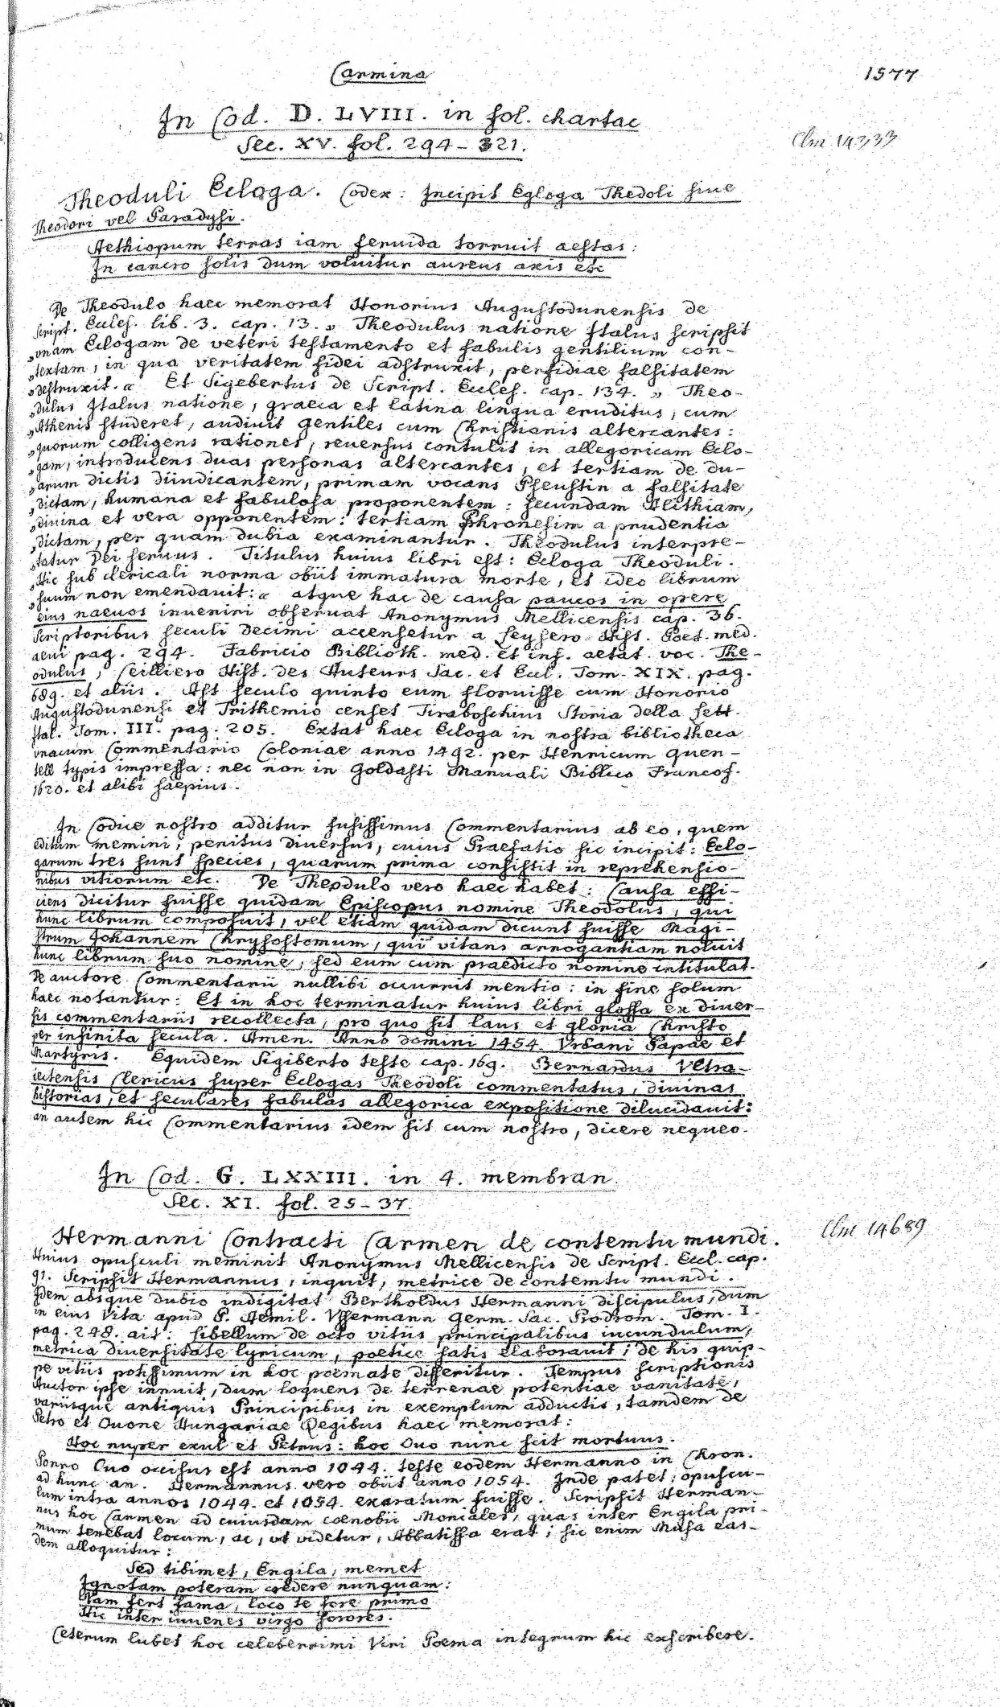 Carmina
1577
In Cod. D. LVIII. in fol. chartac
Clm 14233
Sec. XV. fol. 294-321.
Theoduli Ecloga. Codex: Incipit Egloga Thedoli siue
Theodori vel Paradysi.
Aethiopum terras iam feruida torruit aestas:
In cancro solis dum voluitur aureus axis etc
De Theodulo haec memorat Honorius Augustodunensis de
script. Eccles. lib. 3. cap. 13. „ Theodulus natione Italus scripsit
„vnam Eclogam de veteri testamento et fabulis gentilium con-
„textam, in qua veritatem fidei adstruxit, perfidiae falsitatem
„destruxit. „ Et Sigebertus de Script. Eccles. cap. 134. „ Theo-
„dulus Italus natione, graeca et latina lingua eruditus, cum
„Athenis studeret, audiuit gentiles cum Christianis altercantes:
„quorum colligens rationes, reuersus contulit in allegoricam Eclo-
„gam, introducens duas personas altercantes, et tertiam de du-
„arum dictis diiudicantem, primam vocans Pseustin a falsitate
„dictam, humana et fabulosa proponentem: secundam Alithiam,
„diuina et vera opponentem: tertiam Phronesim a prudentia
„dictam, per quam dubia examinantur. Theodulus interpre-
„tatur Dei seruus. Titulus huius libri est: Ecloga Theoduli.
„Hic sub clericali norma obiit immatura morte, et ideo librum
„suum non emendauit: „ atque hac de causa paucos in opere
eius naeuos inueniri obseruat Anonymus Mellicensis cap. 36.
Scriptoribus seculi decimi accensetur a Leysero Hist. Poet. med.
aeui pag. 294. Fabricio Biblioth. med. et inf. aetat. voc. The-
odulus, Ceilliero Hist. des Auteurs Sac. et Eccl. Tom. XIX. pag.
689. et aliis. Ast seculo quinto eum floruisse cum Honorio
Augustodunensi et Trithemio censet Tiraboschius Storia della Lett.
Ital. Tom. III. pag. 205. Extat haec Ecloga in nostra bibliotheca
vnacum Commentario Coloniae anno 1492. per Henricum Quen-
tell typis impressa: nec non in Goldasti Manuali Biblico Francof.
1620. et alibi saepius.
In Codice nostro additur fusissimus Commentarius ab eo, quem
editum memini, penitus diuersus, cuius Praefatio sic incipit: Eclo-
garum tres sunt species, quarum prima consistit in reprehensio-
nibus vitiorum etc. De Theodulo vero haec habet: Causa effi-
ciens dicitur fuisse quidam Episcopus nomine Theodolus, qui
hunc librum composuit, vel etiam quidam dicunt fuisse Magi-
strum Johannem Chrysostomum, qui vitans arrogantiam noluit
hunc librum suo nomine, sed eum cum praedicto nomine intitulat.
De auctore Commentarii nullibi occurrit mentio: in fine solum
haec notantur: Et in hoc terminatur huius libri glossa ex diuer-
sis commentariis recollecta, pro quo sit laus et gloria Christo
per infinita secula. Amen. Anno domini 1454. Vrbani Papae et
Martyris. Equidem Sigiberto teste cap. 169. Bernardus Vltra-
iectensis Clericus super Eclogas Theodoli commentatus, diuinas
historias, et seculares fabulas allegorica expositione dilucidauit:
an autem hic Commentarius idem sit cum nostro, dicere nequeo.
In Cod. G. LXXIII. in 4. membran.
Sec. XI. fol. 25-37.
Clm 14689
Hermanni Contracti Carmen de contemtu mundi.
Huius opusculi meminit Anonymus Mellicensis de Script. Eccl. cap.
91. Scripsit Hermannus, inquit, metrice de contemtu mundi.
Idem absque dubio indigitat Bertholdus Hermanni discipulus, dum
in eius Vita apud P. Aemil. Vssermann Germ. Sac. Prodrom. Tom. I.
pag. 248. ait: libellum de octo vitiis principalibus iucundulum,
metrica diuersitate lyricum, poetice satis elaborauit; de his quip-
pe vitiis potissimum in hoc poëmate disseritur. Tempus scriptionis
Auctor ipse innuit, dum loquens de terrenae potentiae vanitate,
variisque antiquis Principibus in exemplum adductis, tamdem de
Petro et Ouone Hungariae Regibus haec memorat:
Hoc nuper exul et Petrus: hoc Ouo nunc scit mortuus.
Porro Ouo occisus est anno 1044. teste eodem Hermanno in Chron.
ad hunc an. Hermannus vero obiit anno 1054. Inde patet, opuscu-
lum intra annos 1044. et 1054. exaratum fuisse. Scripsit Herman-
nus hoc Carmen ad cuiusdam coenobii Moniales, quas inter Engila pri-
mum tenebat locum, ac, vt videtur, Abbatissa erat; sic enim Musa eas-
dem alloquitur:
Sed tibimet, Engila, memet
Ignotam poteram credere nunquam:
Nam fert fama, loco te fore primo
Hic inter iuuenes virgo sorores.
Ceterum lubet hoc celeberrimi Viri Poema integrum hic exscribere.